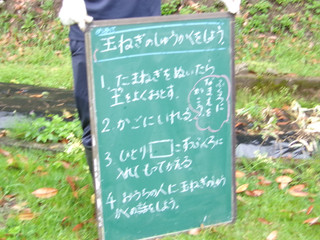 玉ねぎのしゅうかくをしよう
1. たまねぎをぬいたら
土をよくおとす。
2. かごにいれる。
3. ひとり□こずつふくろに
入れ もってかえる。
4. おうちの人に玉ねぎのしゅう
かくの話をしよう。